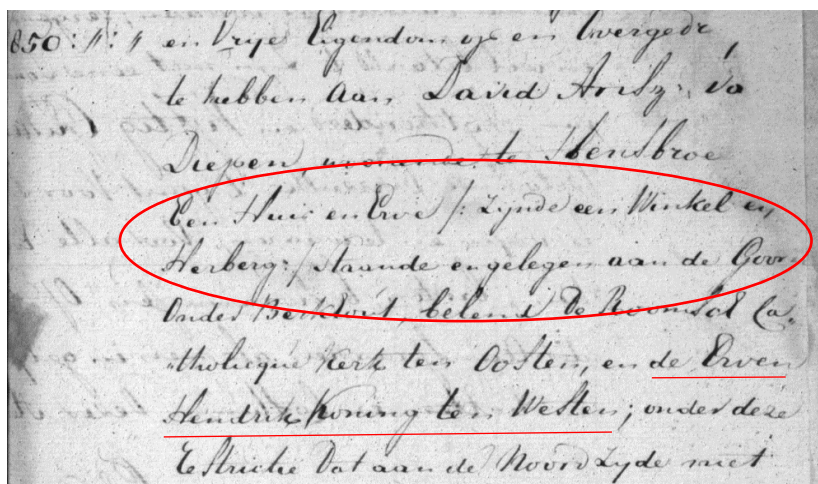 850:〃:〃 en Vrije Eigendom op en Overgedr
te hebben aan David Arisz: va
Diepen, woenende te Obensbroe
Een Huis en Erve /: zynde een Winkel en
Herberg:/ staande en gelegen aan de Goor
Onder Berkhout, belend de Roomsch Ca„
„tholicque Kerk ten Oosten, en de Erven
Hendrik Koning ten Westen; onder deze
Estrictie Dat aan de Noord Zyde niet